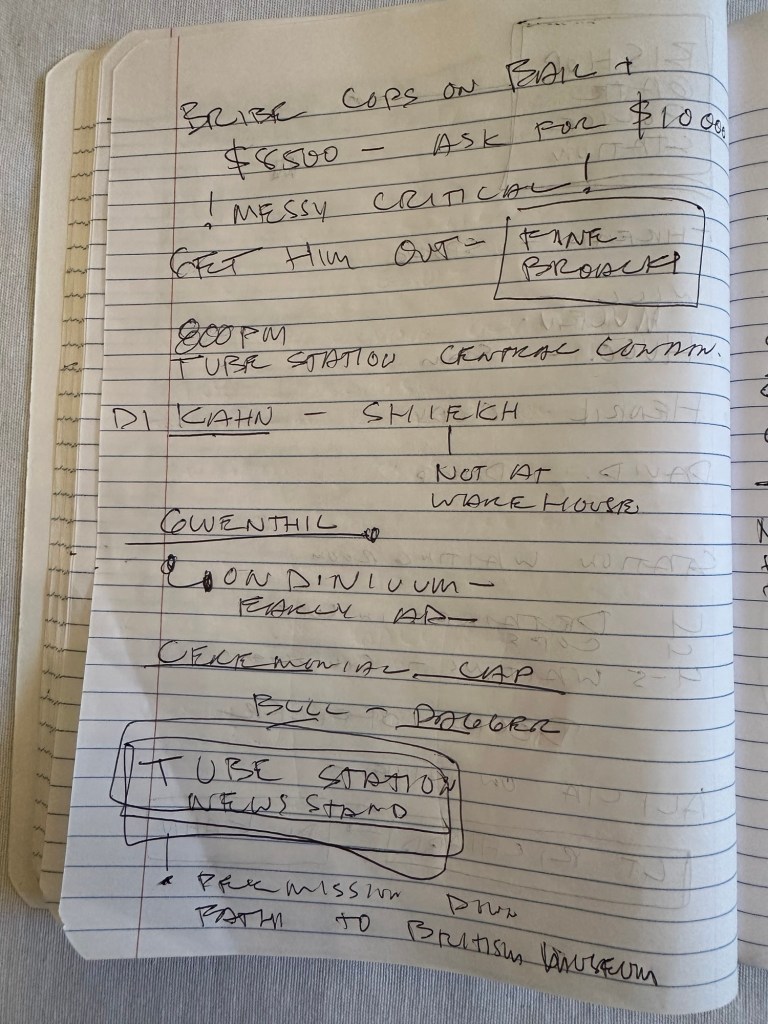 BRIBE COPS ON BAIL +
$8500 - ASK FOR $10000
! MESSY CRITICAL!
GET HIM OUT =
FINE
800PM
TUBE STATION CENTRAL
DI KAHN - SHIEKH
NOT AT
WAREHOUSE
GWENTHIL
LONDINIUUM -
EARLY AD
CEREMONIAL CAP
BULL - DAGGER
TUBE STATION
NEWS STAND
PERMISSION DOWN
PATH TO BRITISH MUSEUM